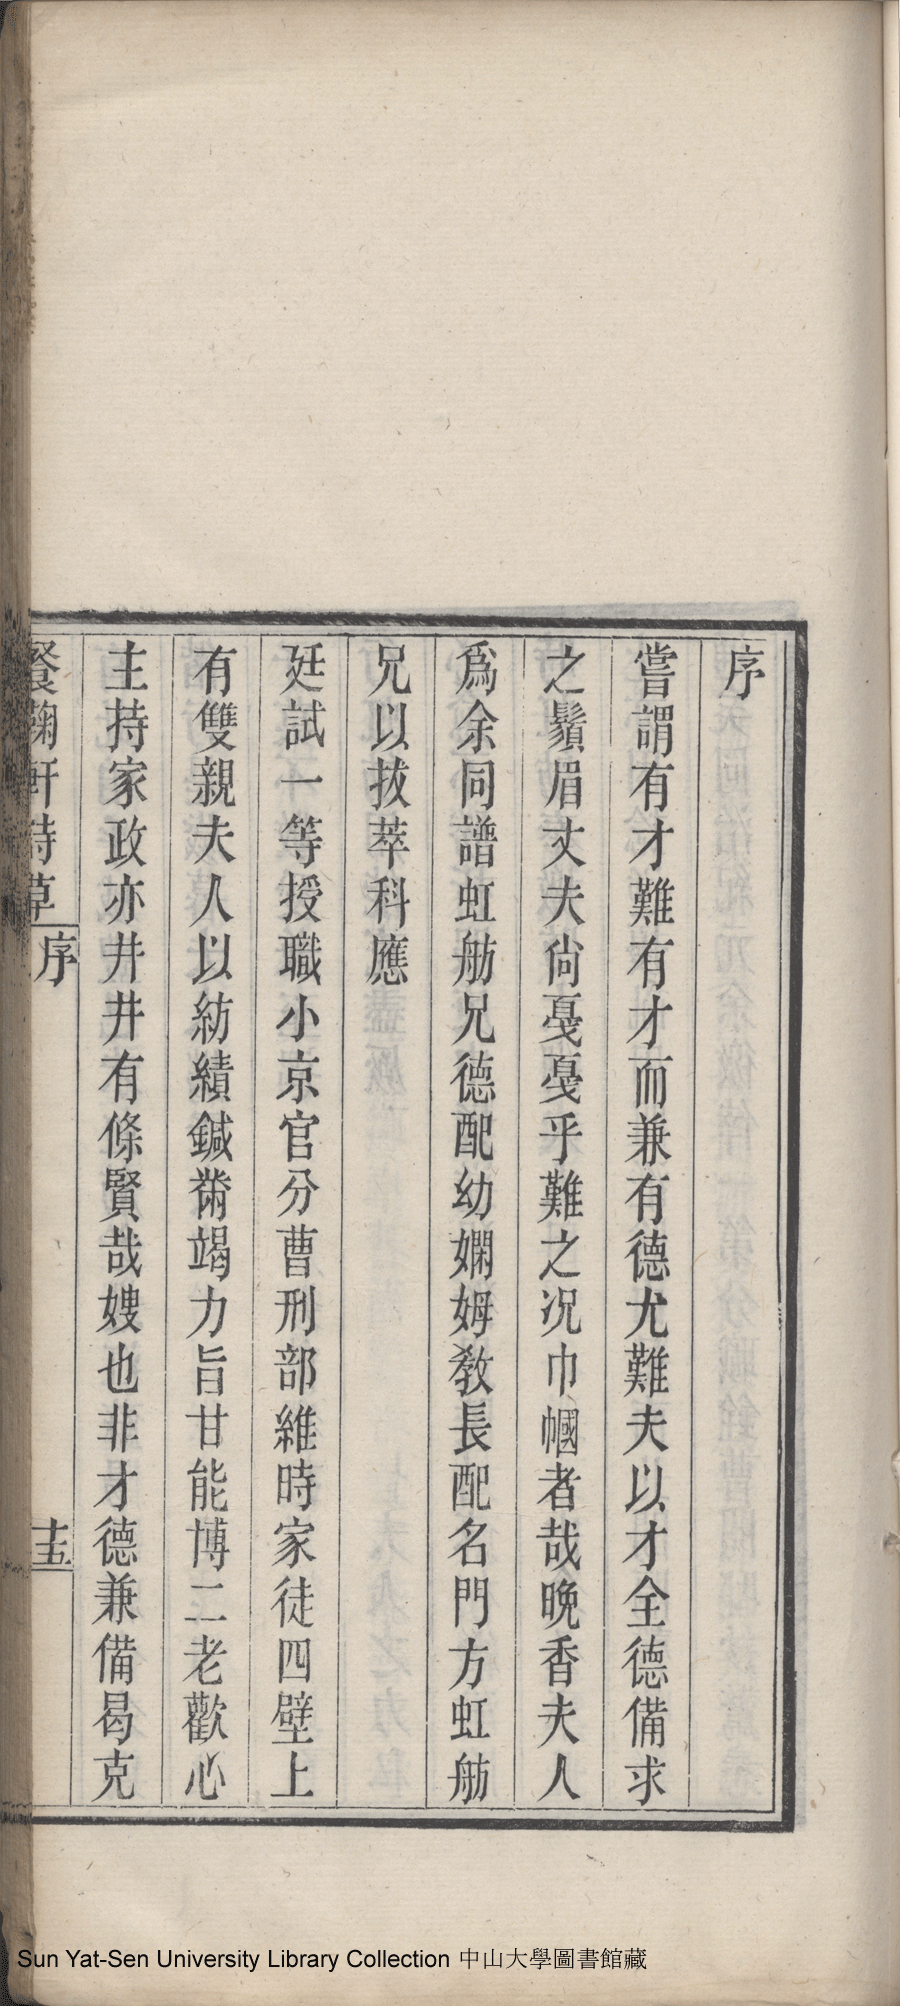 序
嘗謂有才難有才而兼有德尤難夫以才全德備求
之鬚眉丈夫尙戞戞乎難之况巾幗者哉晚香夫人
爲余同譜虹舫兄德配幼嫻姆敎長配名門方虹舫
兄以拔萃科應
廷試一等授職小京官分曹刑部維時家徒四壁上
有雙親夫人以紡績鍼黹竭力旨甘能博二老歡心
主持家政亦井井有條賢哉嫂也非才德兼備曷克
餐菊軒詩草 序 十五
Sun Yat-Sen University Library Collection 中山大學圖書館藏